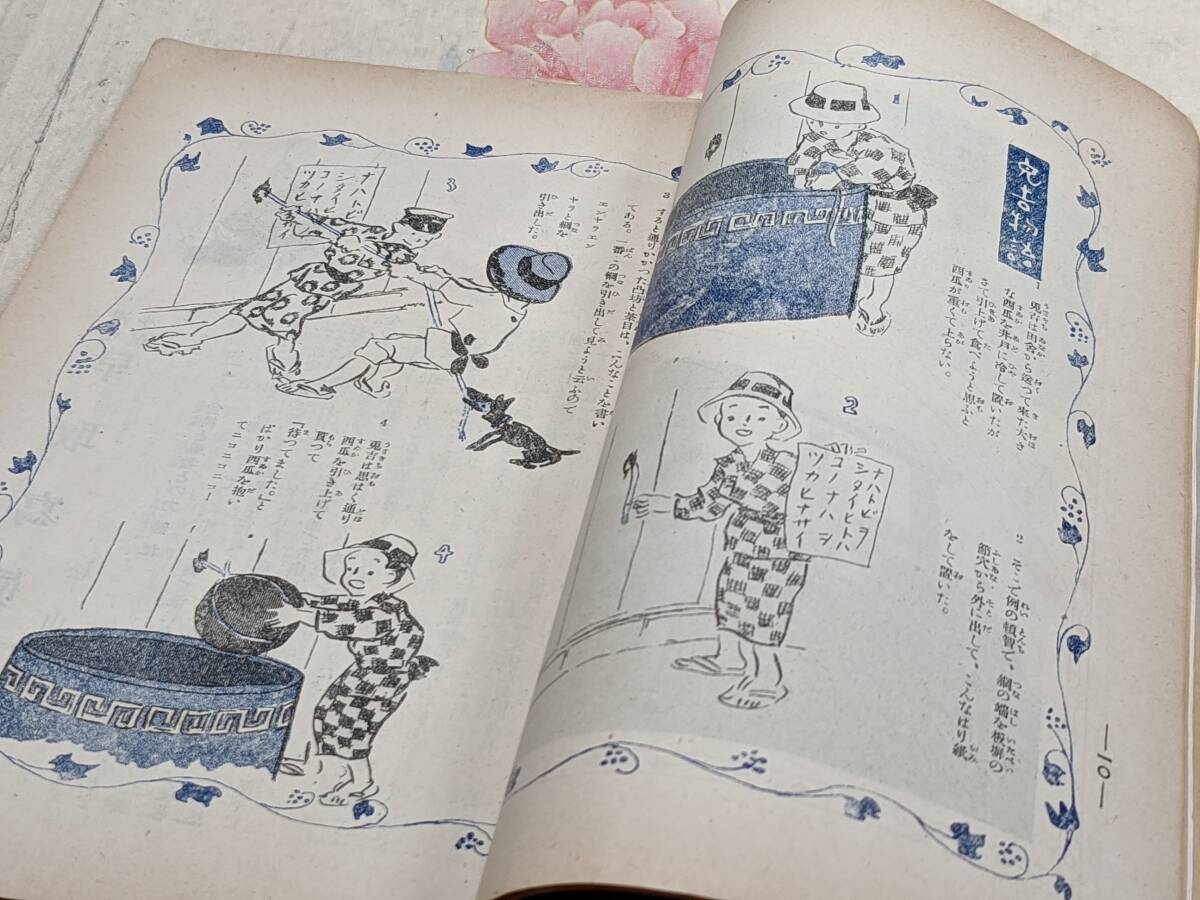 兎吉物語
1
1 兎吉は田舎から送つて來た大き
な西瓜を井戸に冷して置いたが
さて引上げて食べようと思ふと
西瓜が重くて上らない。
2
2 そこで例の頓智で、綱の端を板塀の
節穴から外に出して、こんなはり紙
をして置いた。
ナハトビヲ
シタイヒトハ
コノナハヲ
ツカヒナサイ
—10—
3
3 すると通りかかつた凸坊と茶目は、こんなことを書い
てある。一番この綱を引き出して見ようと云ふので
エンヤラエン
ヤラと綱を
引き出した。
ナハトビ
シタイヒ
コノナ
ツカヒ
4
4 兎吉は思はく通り
西瓜を引き上げて
貰つて
「待つてました。」と
ばかり西瓜を抱い
てニコニコニコー